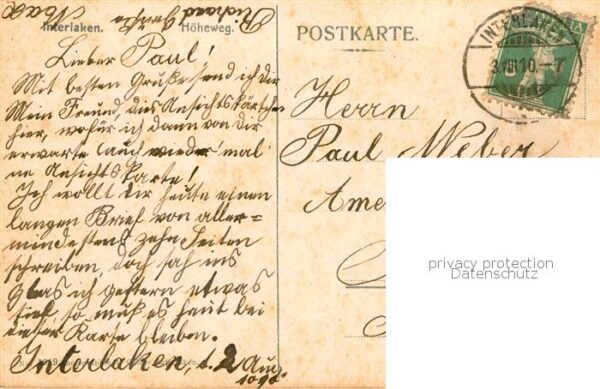 Interlaken. Höheweg.
Lieber Paul!
Mit besten Grüßen send ich dir
Mein Freund, dies Ansichtskärtchen
hier, wofür ich dann von dir
erwarte (auch wieder 'mal
'ne Ansichtskarte!
Ich wollt dir heute einen
langen Brief von aller=
mindestens zehn Seiten
schreiben, doch sah ins
Glas ich gestern etwas
tief, so muß es heut bei
dieser Karte bleiben.
Interlaken, d. 2 Aug.
POSTKARTE.
INTERLAKEN
3.VIII.10.–7
Herrn
Paul Weber
privacy protection
Datenschutz